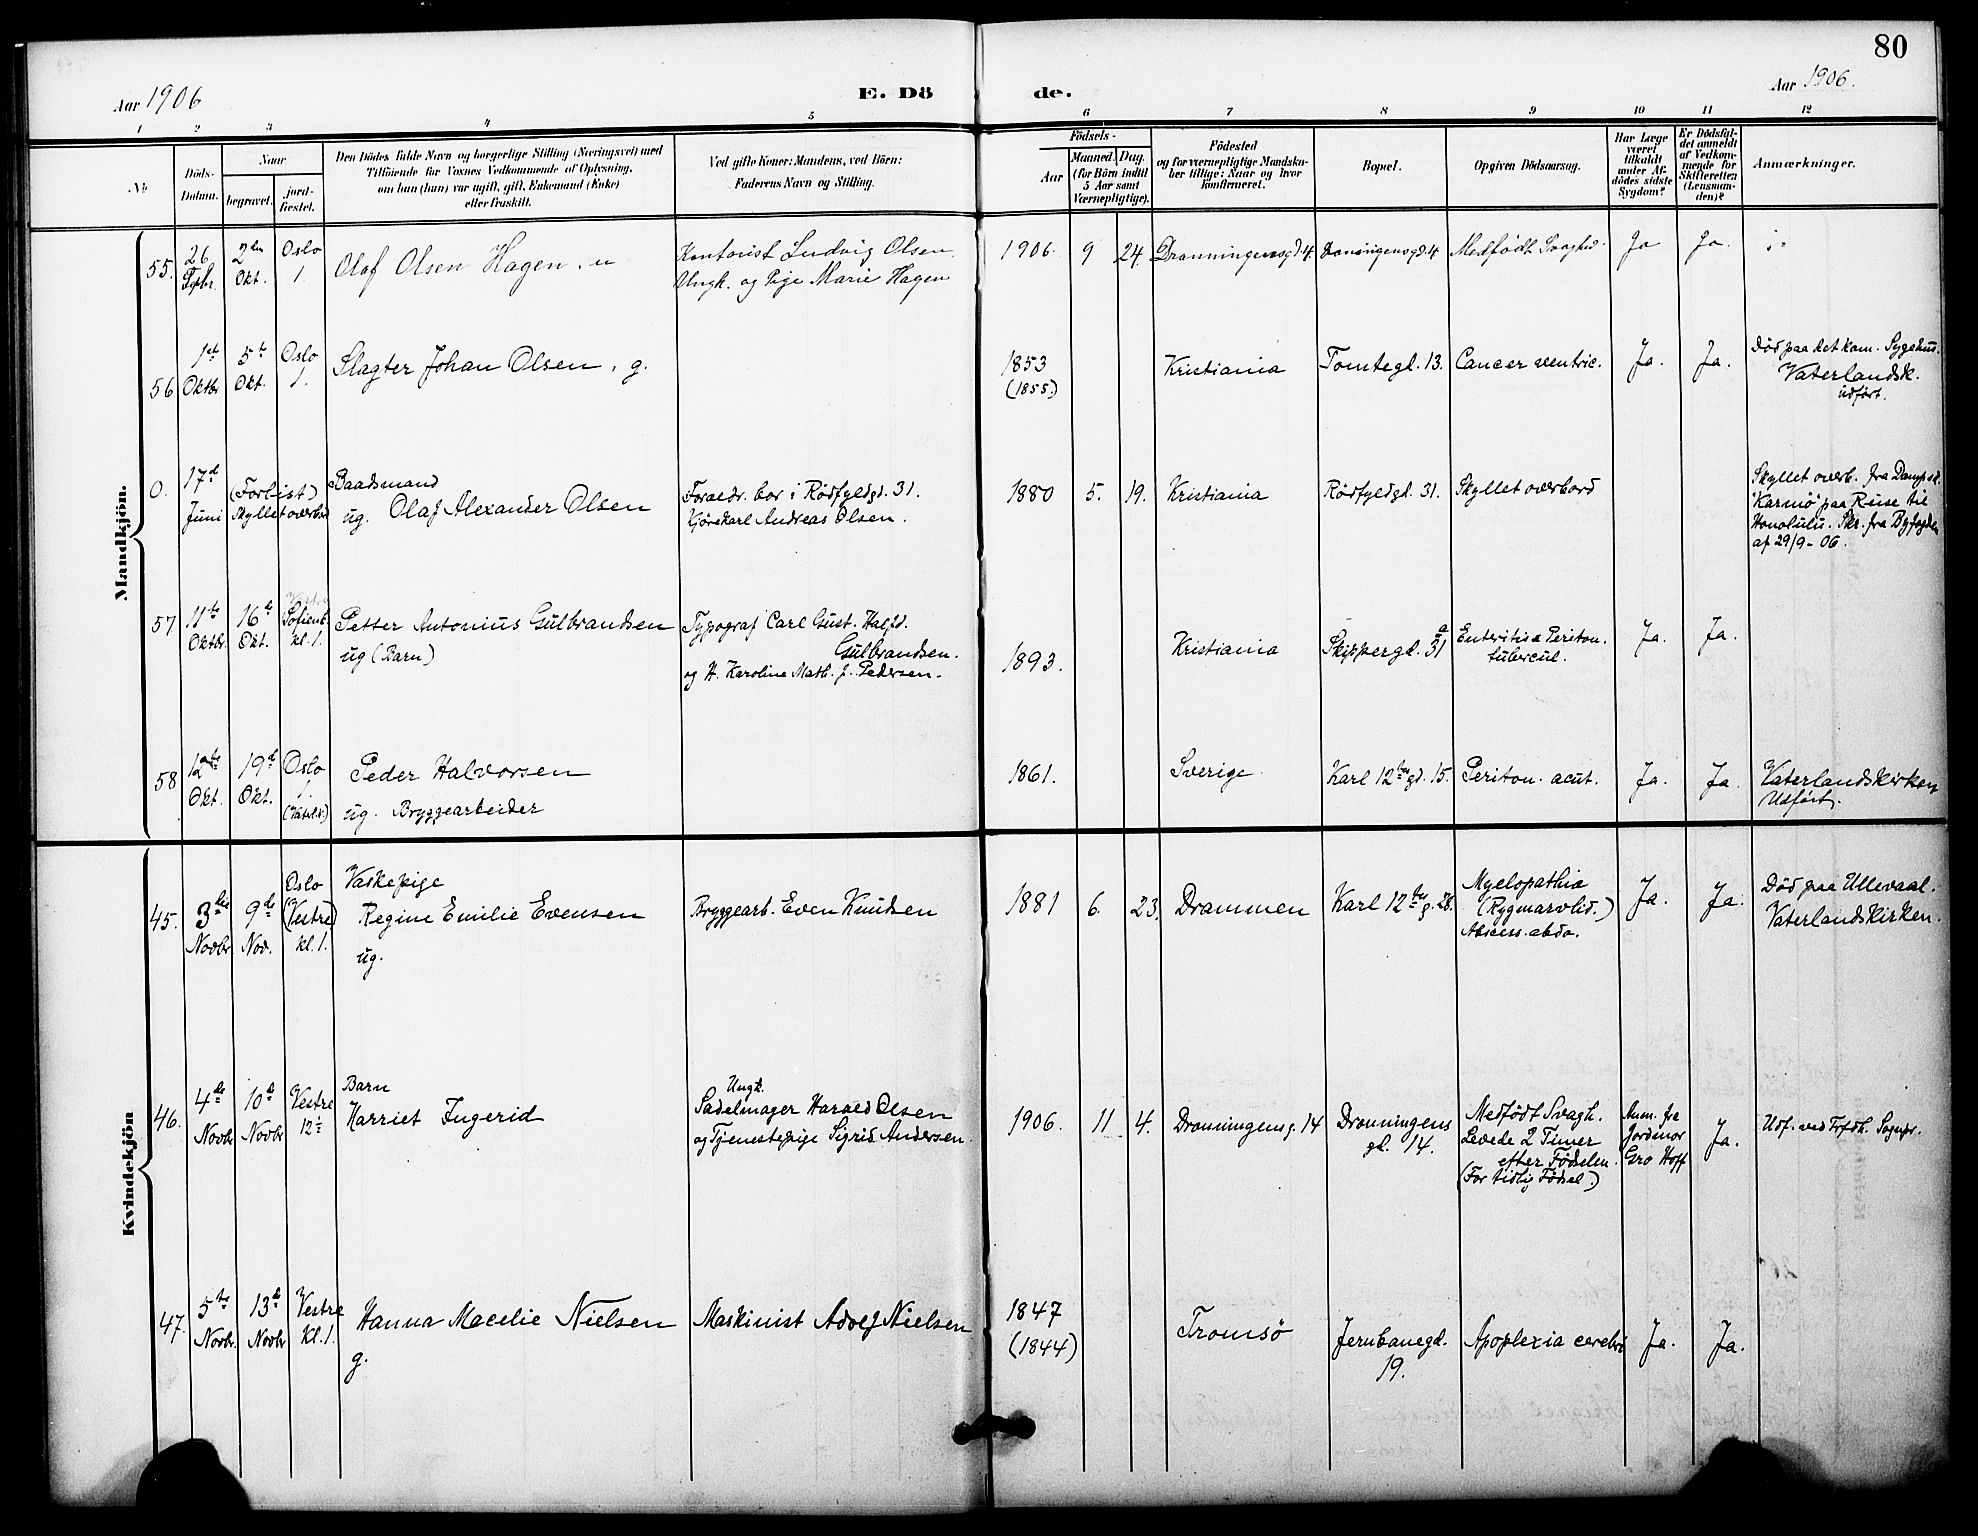 80
Aar 1906
E. Dö
de.
Aar 1906.
1 2 3 4 5 6 7 8 9 10 11 12
No
Döds-
Datum.
Naar
begravet.
jord-
fæstet.
Den Dödes fulde Navn og borgerlige Stilling (Næringsvei) med
Tilföiende for Voxnes Vedkommende af Oplysning,
om han (hun) var ugift, gift, Enkemand (Enke)
eller fraskilt.
Ved gifte Koner: Mandens, ved Börn:
Faderens Navn og Stilling.
Födsels-
Aar
Maaned. Dag.
(for Börn indtil
5 Aar samt
Værnepligtige).
Födested
og for værnepligtige Mandska-
ber tillige: Naar og hvor
konfirmeret.
Bopæl.
Opgiven Dödsaarsag.
Har Læge
været
tilkaldt
under Af-
dödes sidste
Sygdom?
Er Dödsfal-
det anmeldt
af Vedkom-
mende for
Skifteretten
(Lensman-
den)?
Anmærkninger.
Mandkjön.
55.
26
Septbr.
2den
Okt.
Oslo
1.
Olaf Olsen Hagen. u
Kontorist Ludvig Olsen
Ungk. og Pige Marie Hagen
1906. 9 24. Dronningensgd. 4. Dronningensgd. 4 Medfødt Svaghed. Ja Ja.
56
1st
Oktbr
5te
Okt.
Oslo
1.
Slagter Johan Olsen, g.
1853
(1855.)
Kristiania Tomtegd. 13. Cancer ventric. Ja. Ja.
Død paa det kom. Sygehus.
Vaterlandsk.
udført.
0.
17d
Juni
(Forlist)
Skyllet overbord
Baadsmand
ug. Olaf Alexander Olsen
Foraeldr. bor i Rødfyldgd. 31.
Kjørekarl Andreas Olsen.
1880 5. 19. Kristiania Rødfyldgd. 31. Skyllet overbord
Skyllet overb. fra Dampsk.
"Karmø" paa Reise til
Honolulu. Skr. fra Byfogden
af 29/9-06.
57
11te
Oktbr.
16de
Okt.
Vestre
Sofienb.
kl. 1.
Petter Antonius Gulbrandsen
ug (Barn)
Typograf Carl Gust. Halfd.
Gulbrandsen.
og H. Karoline Math. f. Pedersen.
1893.
Kristiania Skippergd. 31a
Enteritis & Periton.
tubercul.
Ja. Ja.
58
12te
Okt.
19de
Okt.
Oslo
1.
(Vaterl.k.)
Peder Halvorsen
ug. Bryggearbeider
1861. Sverige. Karl 12tes gd. 15. Periton. acut. Ja. Ja.
Vaterlandskirken
Udført.
Kvindekjön
45.
3die
Novbr
9de
Nov.
Oslo
(Vestre)
kl. 1.
Vaskepige
Regine Emilie Evensen
ug.
Bryggearb. Even Knudsen
1881 6. 23. Drammen Karl 12tes g. 28.
Myelopathia
(Rygmarvlid.)
Abscess. abdo.
Ja. Ja.
Død paa Ullevaal.
Vaterlandskirken.
46.
4de
Novbr
10de
Novbr
Vestre
12½
Barn
Harriet Ingerid
Ungk.
Sadelmager Harald Olsen
og Tjenestepige Sigrid Andersen.
1906. 11 4. Dronningensg. 14
Dronningens
gd. 14.
Medfødt Svagh.
Levede 2 Timer
efter Fødselen.
(For tidlig Fødsel.)
Anm. fra
Jordmor
Gro Hoff
Ja.
Udf. ved Trfdk. Sognepr.
47.
5te
Novbr.
13de
Novbr
Vestre
kl. 1.
Hanna Macelie Nielsen
g.
Maskinist Adolf Nielsen
1847
(1844)
Tromsø
Jernbanegd.
19.
Apoplexia cerebri Ja. Ja.